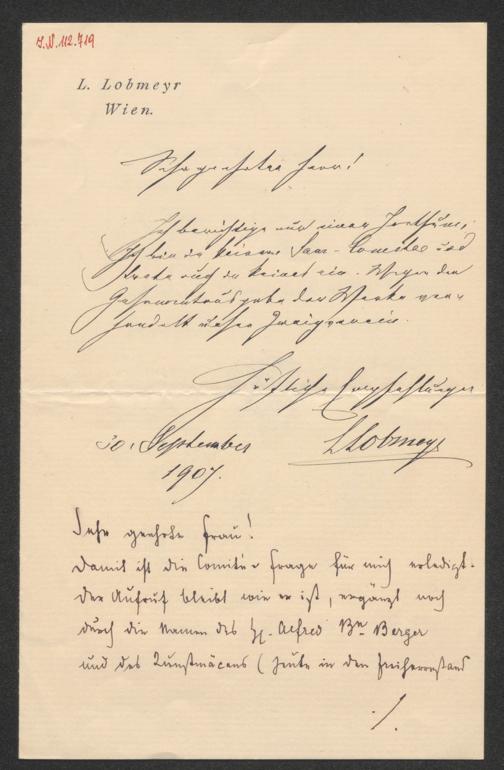 I.N. 112.719
L. Lobmeyr
Wien.
Sehr geehrter Herr!
Ich berichtige nur einen Irrthum;
Ich bin in keinem Saar-Comitee und
trete auch in keines ein. Wegen der
Gesammtausgabe der Werke ver-
handelt unser Zweigverein.
Höfliche Empfehlungen
30. September LLobmeyr
1907.
Sehr geehrte Frau!
Damit ist die Comité-Frage für mich erledigt.
Der Aufruf bleibt wie er ist, ergänzt noch
durch die Namen des H. Alfred Bn Berger
und des Kunstmäcens (heute in den Freiherrnstand
./.